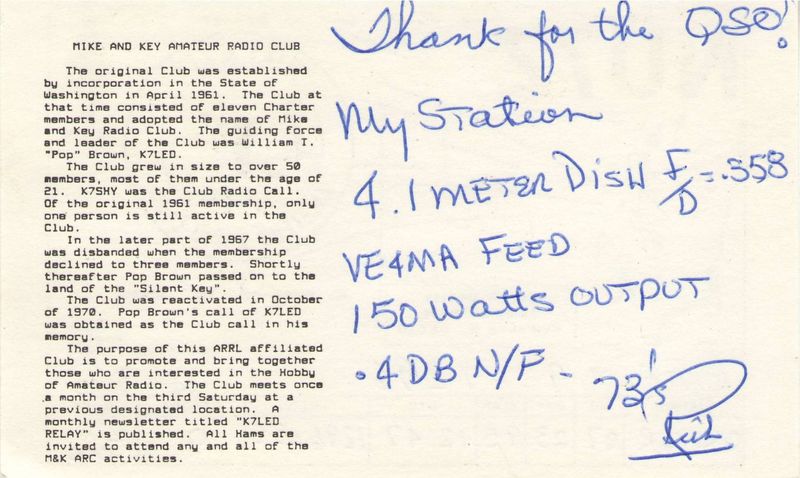 MIKE AND KEY AMATEUR RADIO CLUB
The original Club was established
by incorporation in the State of
Washington in April 1961. The Club at
that time consisted of eleven Charter
members and adopted the name of Mike
and Key Radio Club. The guiding force
and leader of the Club was William T.
"Pop" Brown, K7LED.
The Club grew in size to over 50
members, most of them under the age of
21. K7SHY was the Club Radio Call.
Of the original 1961 membership, only
one person is still active in the
Club.
In the later part of 1967 the Club
was disbanded when the membership
declined to three members. Shortly
thereafter Pop Brown passed on to the
land of the "Silent Key".
The Club was reactivated in October
of 1970. Pop Brown's call of K7LED
was obtained as the Club call in his
memory.
The purpose of this ARRL affiliated
Club is to promote and bring together
those who are interested in the Hobby
of Amateur Radio. The Club meets once
a month on the third Saturday at a
previous designated location. A
monthly newsletter titled "K7LED
RELAY" is published. All Hams are
invited to attend any and all of the
M&K ARC activities.
Thank for the QSO!
My Station
4.1 METER DISH F/D=.358
VE4MA FEED
150 Watts OUTPUT
.4 DB N/F -
73's
Rich